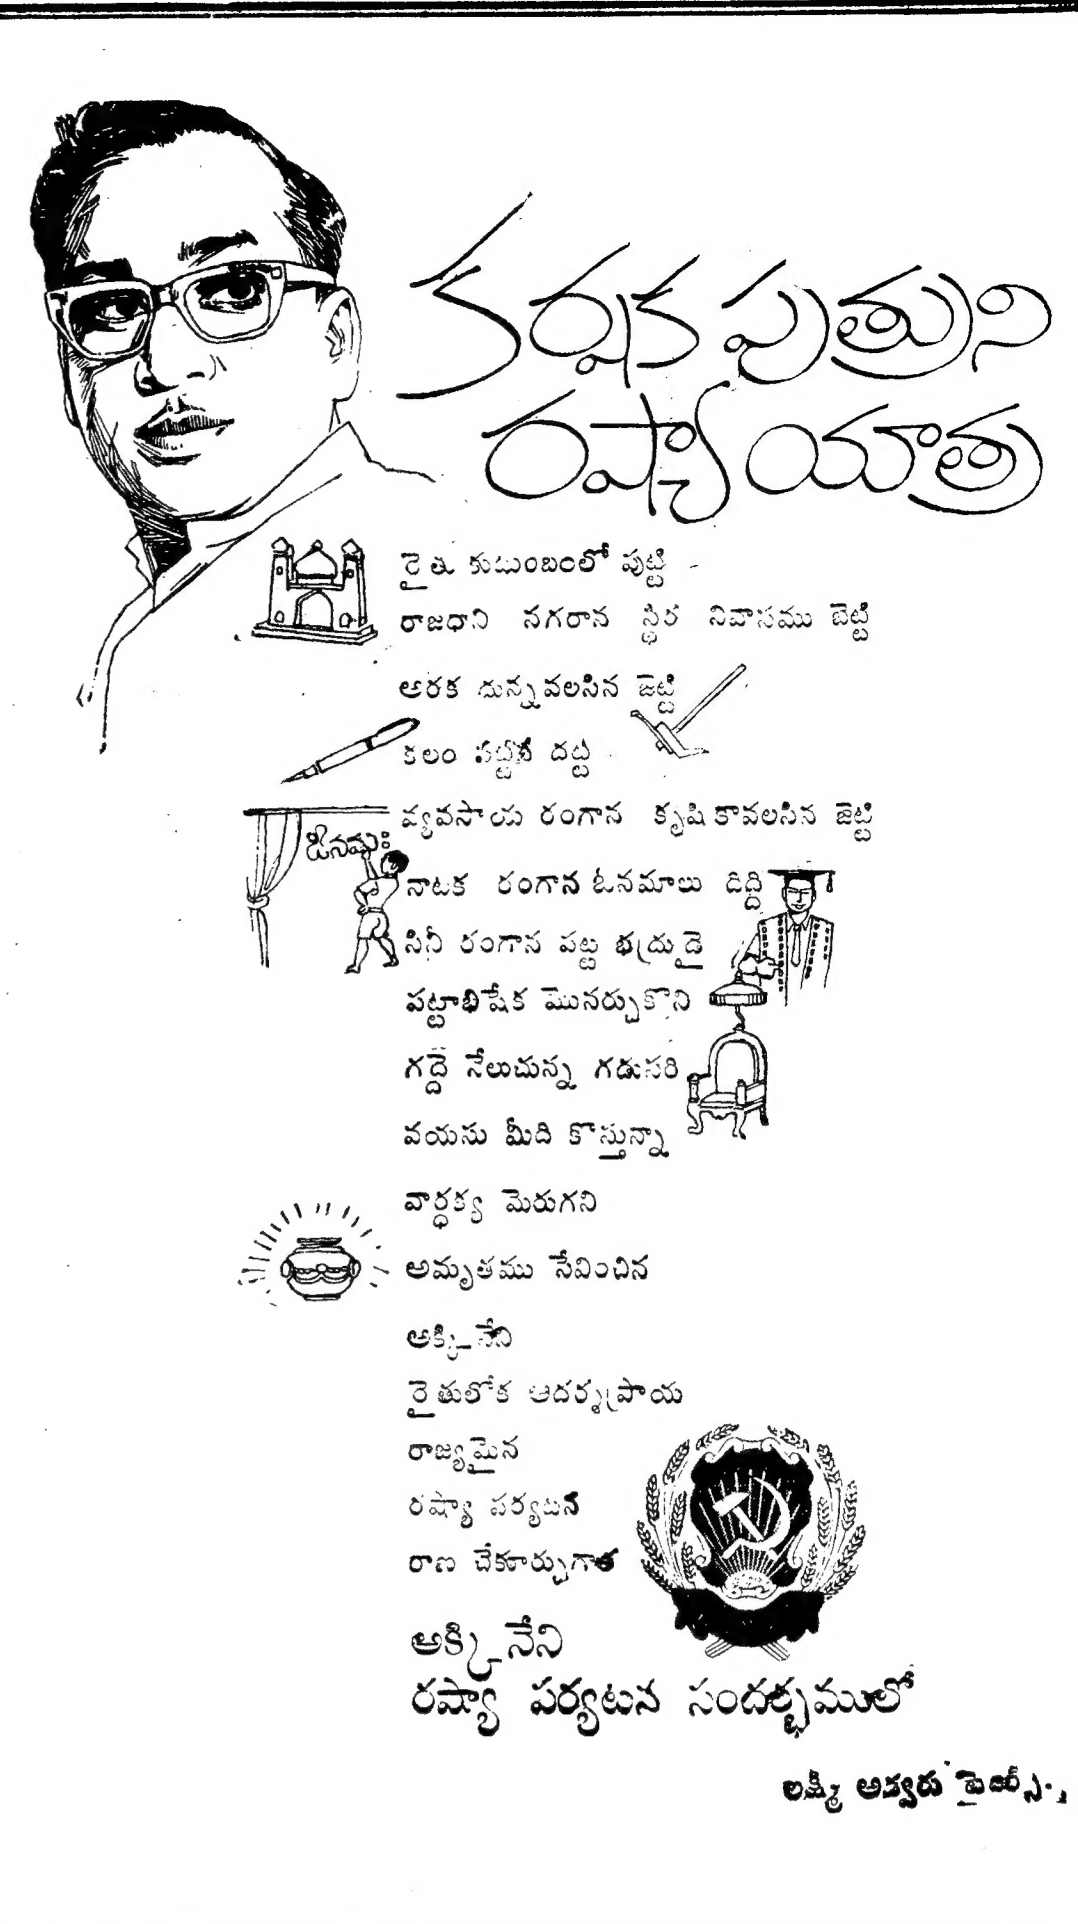 కర్షక పుత్రుని
రష్యా యాత్ర
రైతు కుటుంబంలో పుట్టి -
రాజధాని నగరాన స్థిర నివాసము బెట్టి
అరక దున్నవలసిన జెట్టి
కలం దట్టి
వ్యవసాయ రంగాన కృషి కావలసిన జెట్టి
ఓనమః
నాటక రంగాన ఓనమాలు దిద్ది
సినీ రంగాన పట్ట భద్రుడై
పట్టాభిషేక మొనర్చుకొని
గద్దె నేలుచున్న గడుసరి
వయసు మీది కొస్తున్నా
వార్ధక్య మెరుగని
అమృతము సేవించిన
అక్కినేని
రైతులోక ఆదర్శప్రాయ
రాజ్యమైన
రష్యా పర్యటన
రాణ చేకూర్చుగాత
అక్కినేని
రష్యా పర్యటన సందర్భములో
లక్ష్మీ